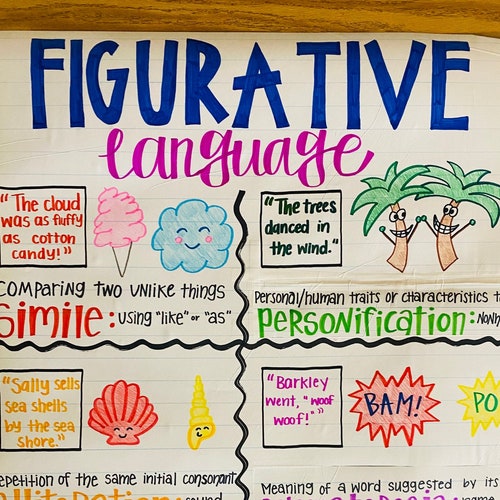 FIGURATIVE
language
"The cloud
was as fluffy
as cotton
candy!"
COMPARING two unlike things
Simile: using "like" or "as"
"The trees
danced in
the wind."
Personal/human traits or characteristics
PERSONIFICATION:
"Sally sells
sea shells
by the sea
shore."
repetition of the same initial consonant
Alliteration: sound
"Barkley
went, "woof
woof!""
BAM!
PO
Meaning of a word suggested by its
name